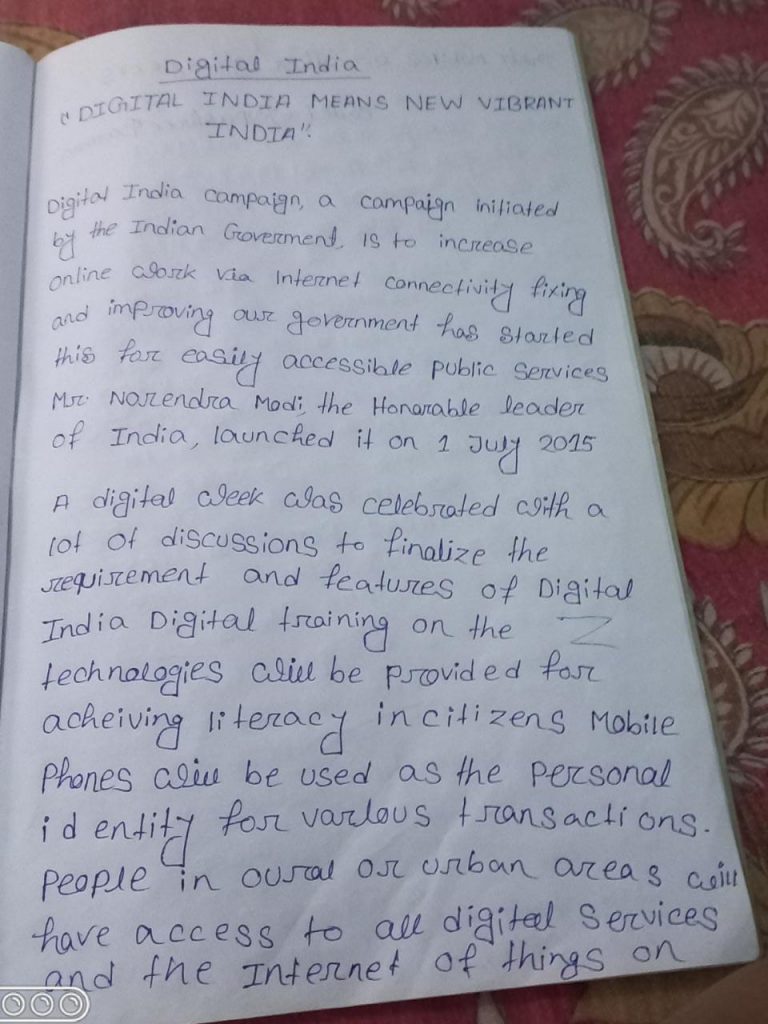 Digital India
"DIGITAL INDIA MEANS NEW VIBRANT
INDIA".
Digital India campaign, a campaign initiated
by the Indian Goverment, Is to increase
online work via Internet connectivity fixing
and improving our government has started
this for easily accessible public services
Mr. Narendra Modi, the Honorable leader
of India, launched it on 1 July 2015
A digital week was celebrated with a
lot of discussions to finalize the
requirement and features of Digital
India Digital training on the
technologies will be provided for
acheiving literacy in citizens Mobile
Phones will be used as the personal
identity for various transactions.
People in oural or urban areas will
have access to all digital services
and the Internet of things on